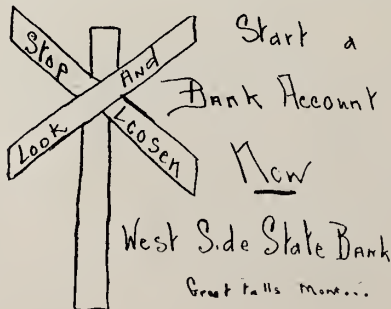 Stop
And
Look
Lcosen
Start a
Bank Account
Now
West Side State Bank
Great Falls Mont...